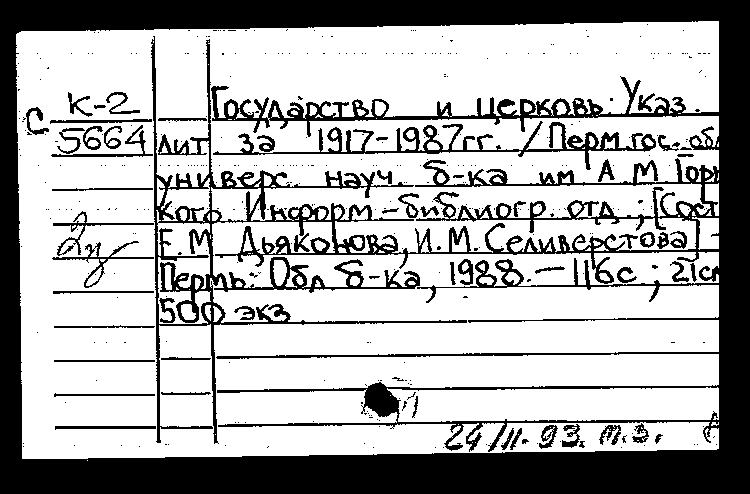 С К-2 Государство и церковь: Указ.
5664 лит за 1917-1987гг. / Перм. гос. обл
универс. науч. б-ка им А М Горь
кого. Информ.-библиогр. отд.; [Сост
Е. М Дьяконова, И. М. Селиверстова] -
Пермь: Обл б-ка, 1988. — 116с ; 21см
500 экз.
24/II-93. т.з.